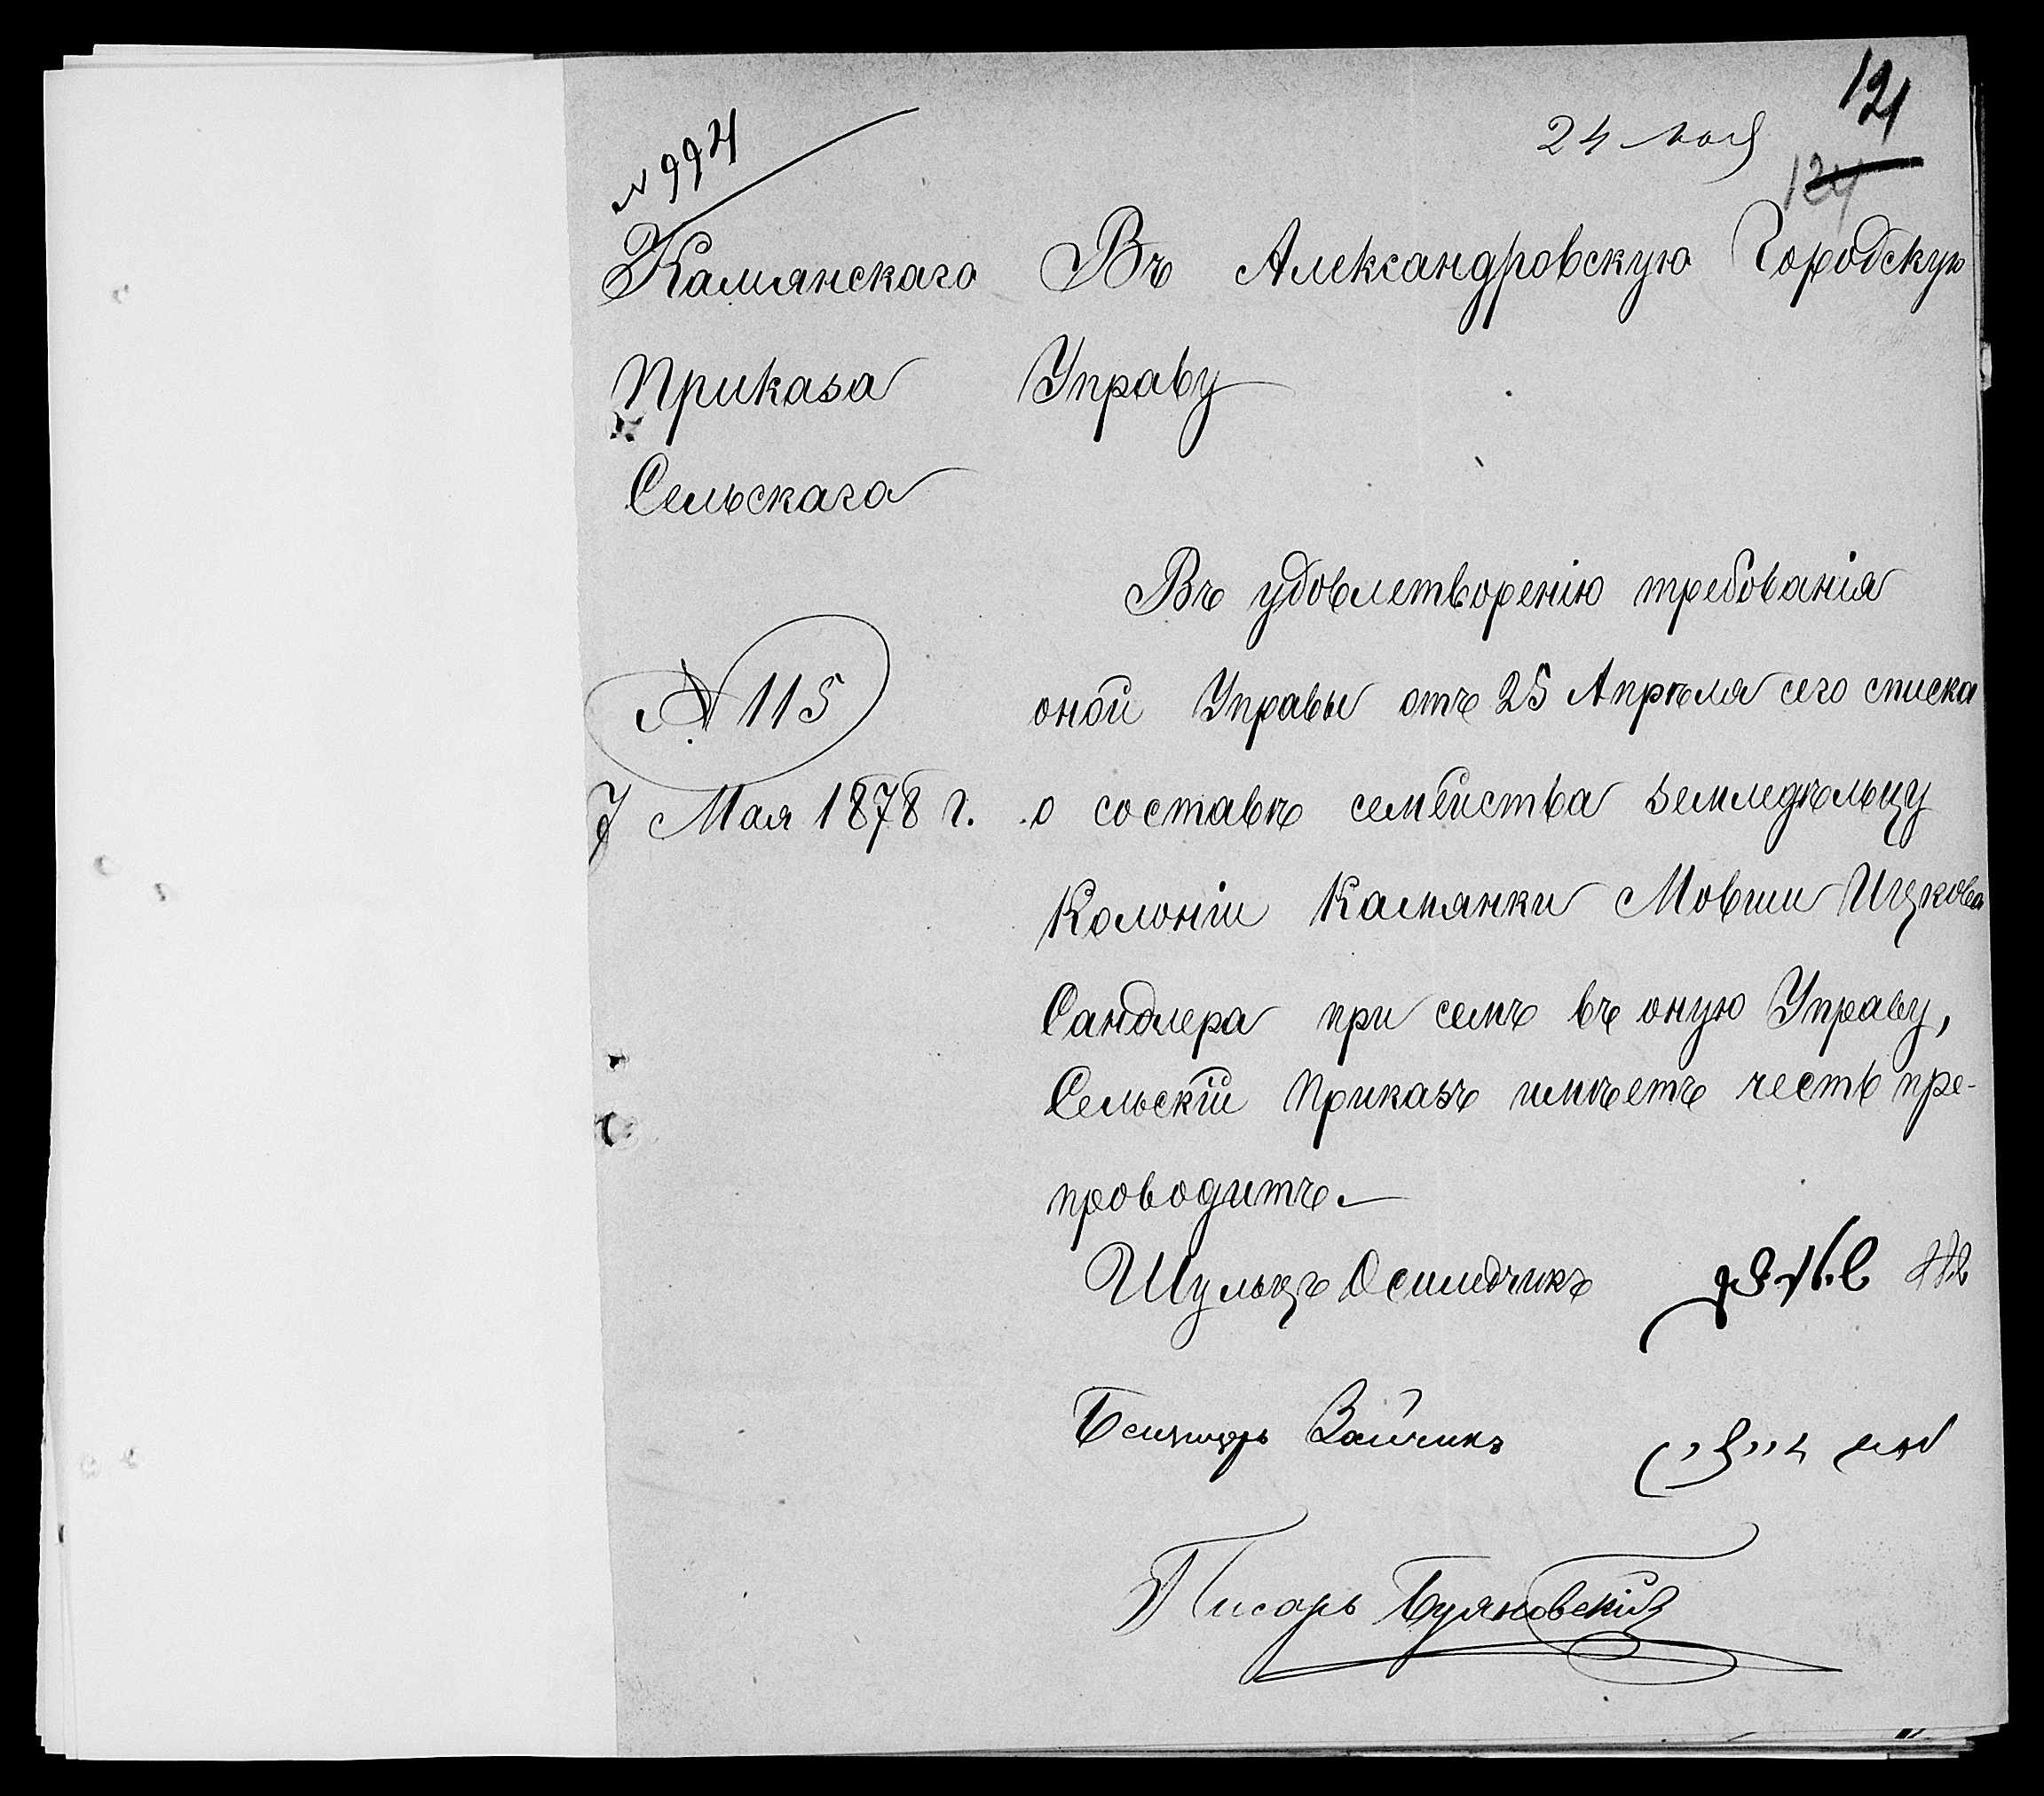 121
24 мая
124
№ 994
Камянскаго
Приказа
Сельскаго
№ 115
7 Мая 1878 г.
Въ Александровскую Городскую
Управу
Въ удовлетворенію требованія
оной Управы отъ 25 Апрѣля сего списка
о составѣ семейства земледѣльцу
Колоніи Камянки Мовши Ицкова
Сандлера при семъ въ оную Управу,
Сельскій Приказъ имѣетъ честь пре-
проводитъ.
Шульцъ Осиледчикъ
Бейзицеръ Зайчикъ
Писарь Буяновскій